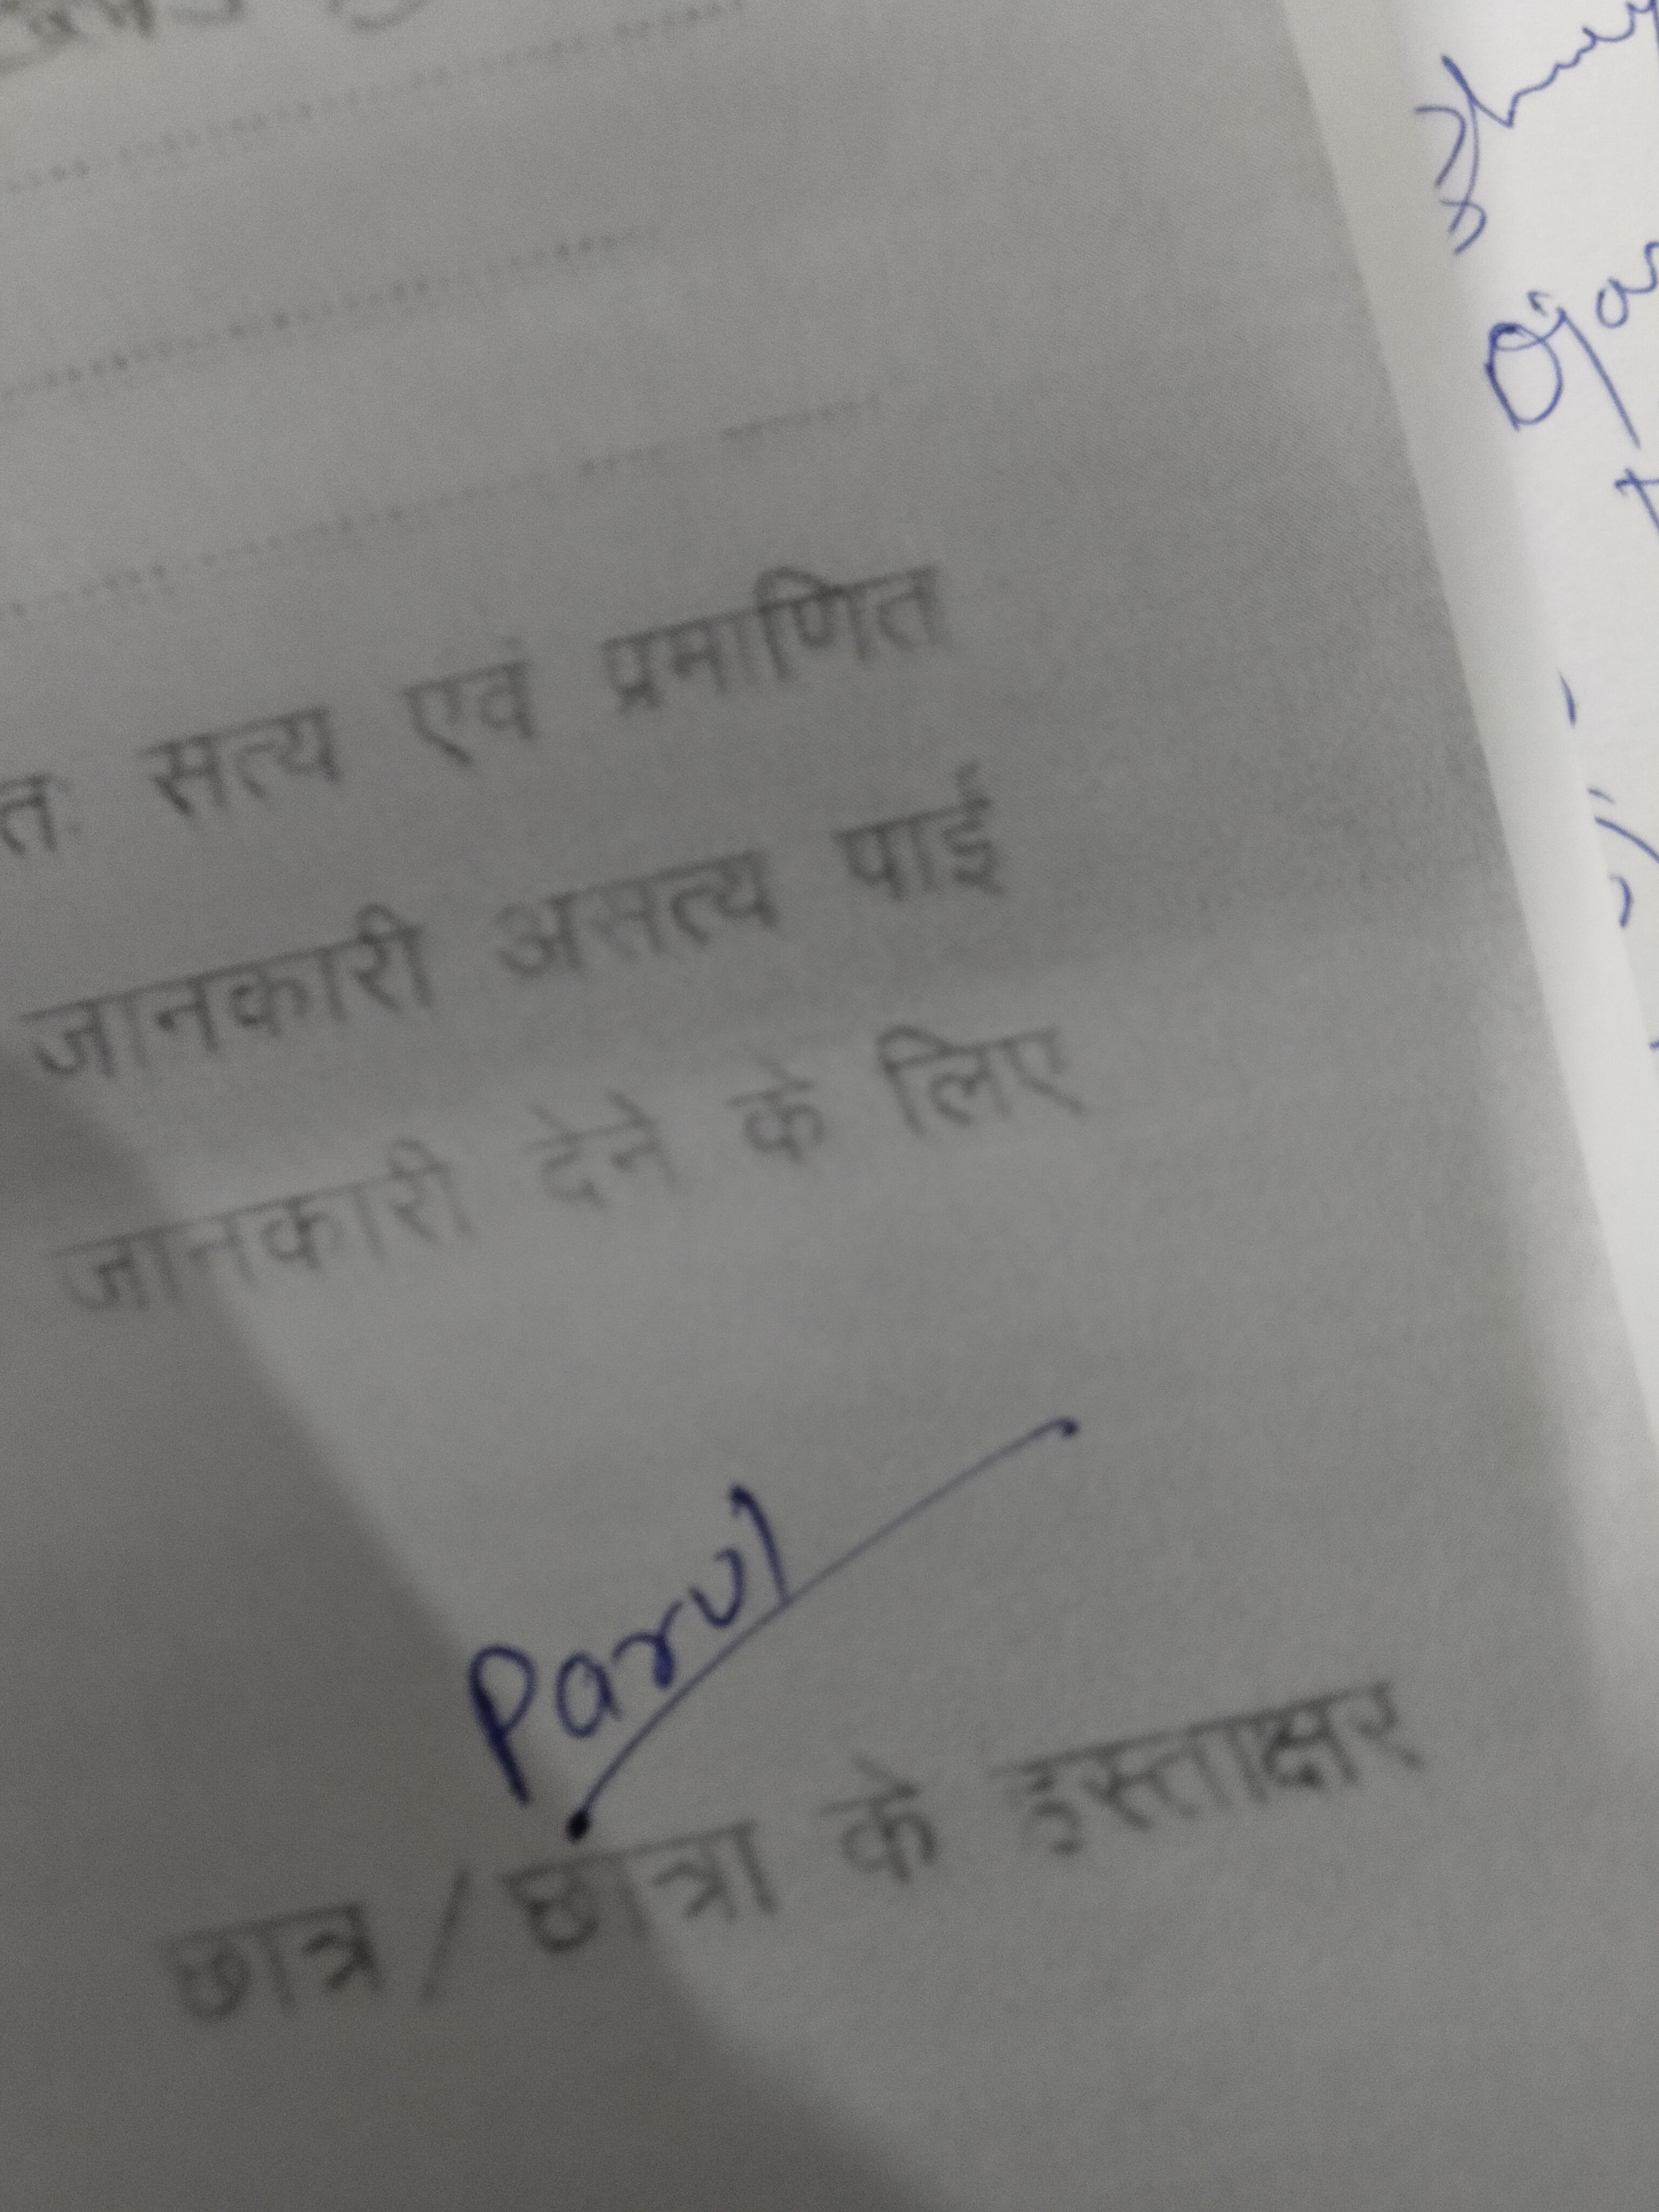 सत्य एवं प्रमाणित
जानकारी असत्य पाई
जानकारी देने के लिए
Parul
छात्र/छात्रा के हस्ताक्षर